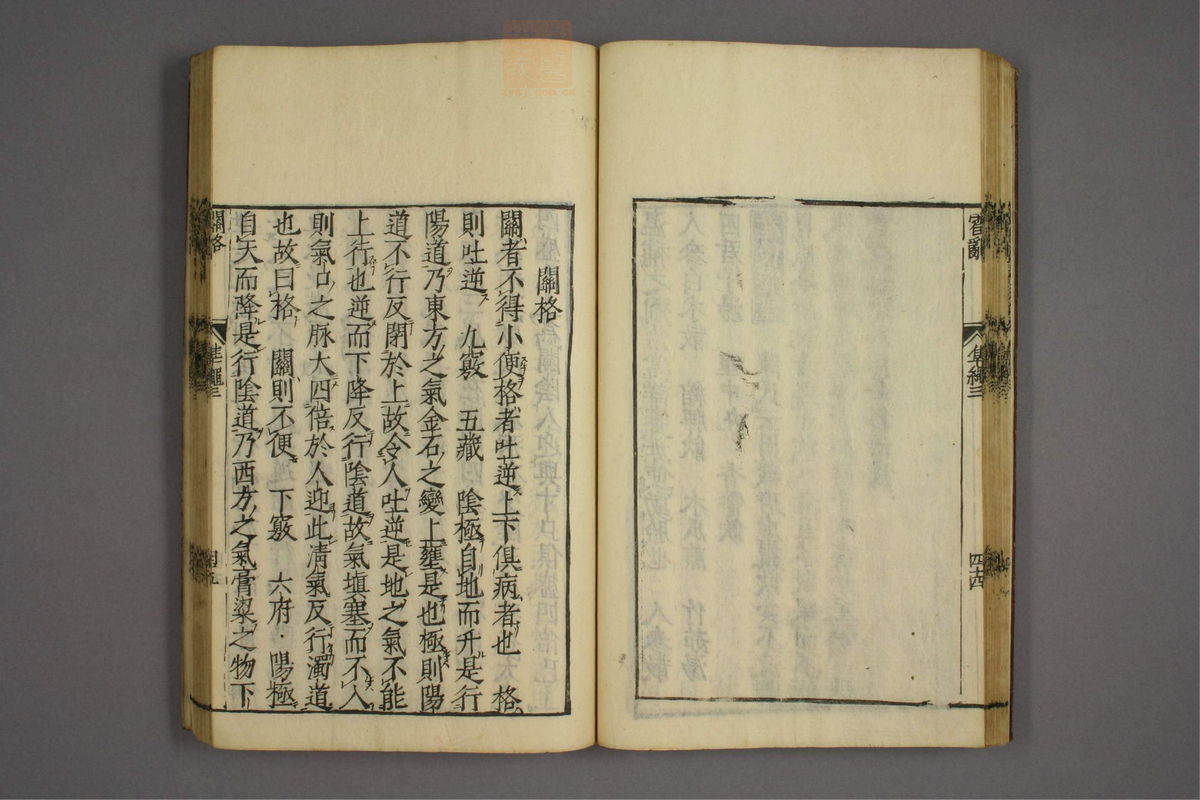 霍亂
集綱三
關格
關者不得小便格者吐逆上下俱病者也 格
則吐逆 九竅 五藏 陰極自地而升是行
陽道乃東方之氣金石之變上壅是也極則陽
道不行反閉於上故令人吐逆是地之氣不能
上行也逆而下降反行陰道故氣填塞而不入
則氣口之脉大四倍於人迎此清氣反行濁道
也故曰格 關則不便 下竅 六府 陽極
自天而降是行陰道乃西方之氣膏粱之物下
關格